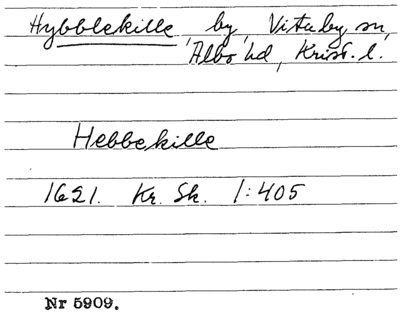 Hybblekille, by, Vitaby sn,
Albo hd, Krist. l.
Hebbekille
1621. Kr. Sk. 1:405
Nr 5909.